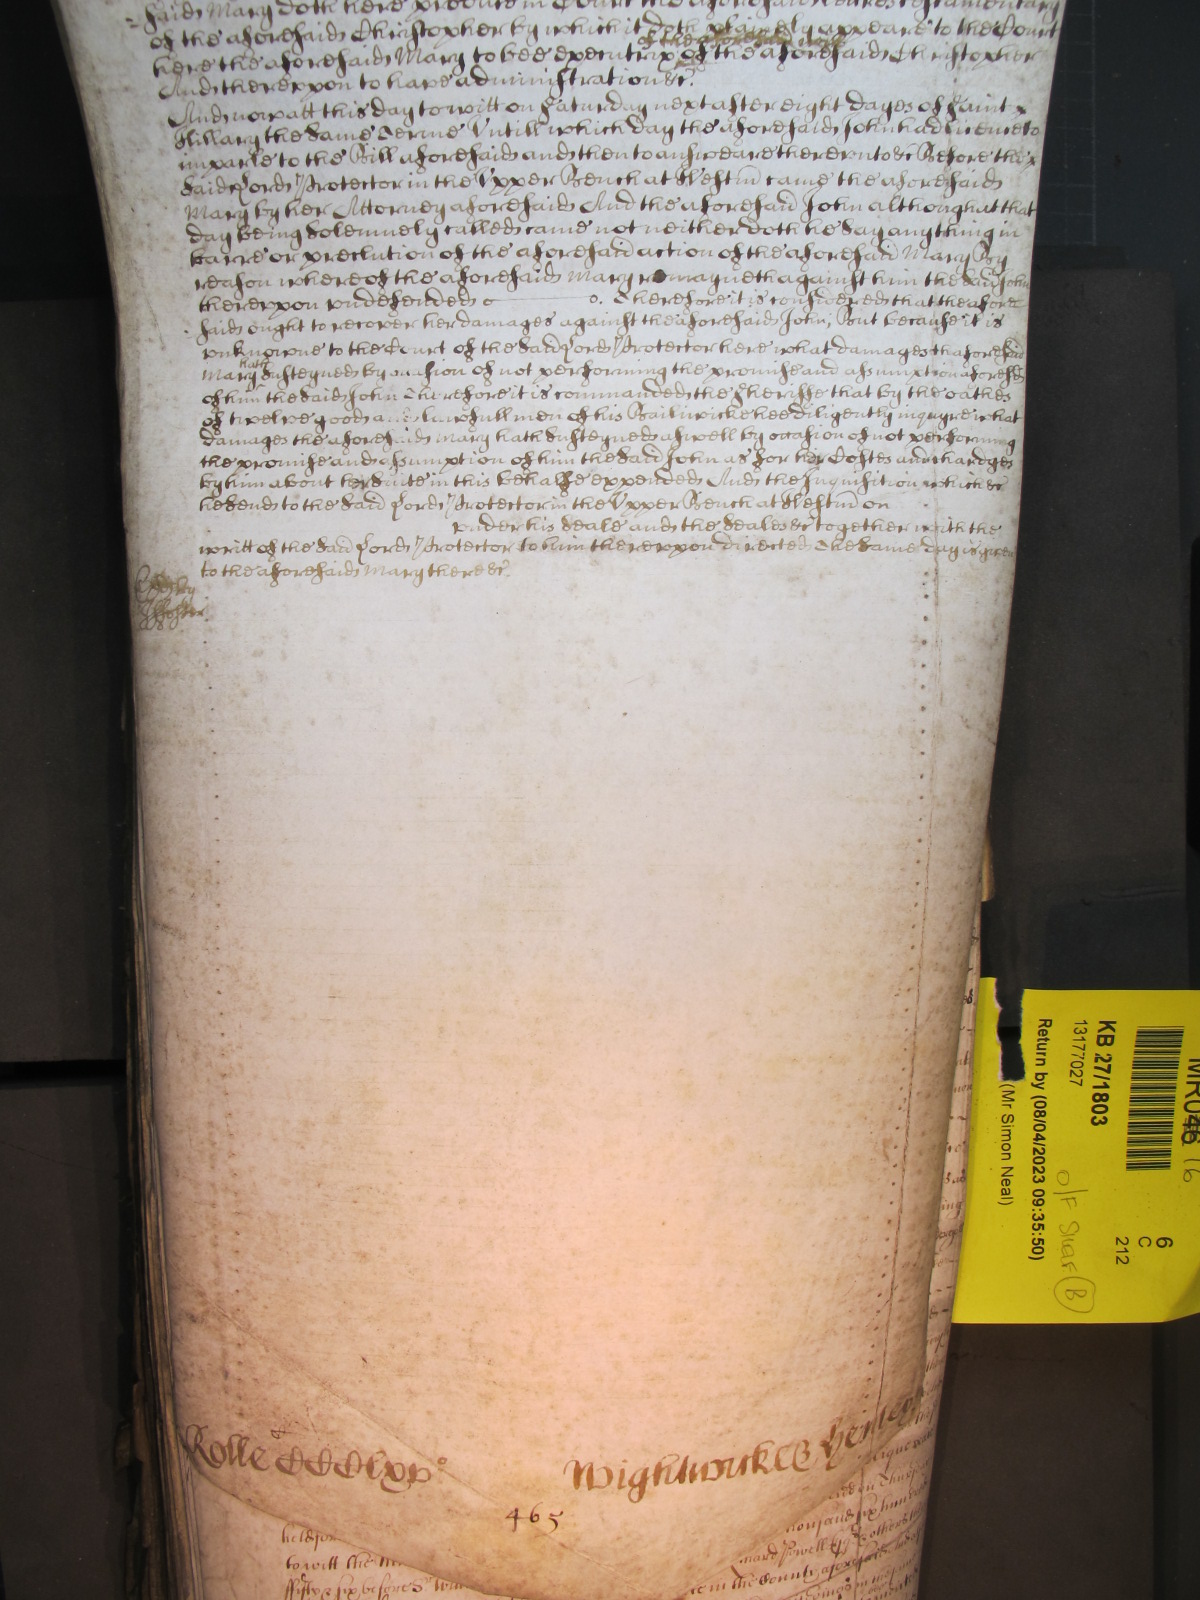 said Mary doth here produce in Court the aforesaid Letters testamentary
of the aforesaid Christopher by which it doth plainely appeare to the Court
here the aforesaid Mary to bee executrix of the aforesaid Christopher
And thereupon to have administration &c.
And now att this day to witt on Saturday next after eight dayes of Saint
Hillary the same Terme Untill which day the aforesaid John had licence to
imparle to the Bill aforesaid and then to answeare thereunto &c Before the
said Lord Protector in the Upper Bench at Westm came the aforesaid
Mary by her Attorney aforesaid And the aforesaid John although at that
day being solemnely called came not neither doth he say any thing in
barre or preclution of the aforesaid action of the aforesaid Mary By
reason whereof the aforesaid Mary remayneth against him the said John
thereupon undefended o o. Therefore it is considered that the afore
said ought to recover her damages against the aforesaid John, But because it is
unknowne to the Court of the said Lord Protector here what damages the aforesaid
Mary hath susteyned by occasion of not performing the promise and assumption aforesaid
of him the said John Therefore it is commanded the Sheriffe that by the oathes
of twelve good and lawfull men of his Bailiwicke hee diligently inquyre what
damages the aforesaid Mary hath susteyned aswell by occasion of not performing
the promise and assumption of him the said John as for her Costes and chardges
by him about her suite in this behalfe expended And the Inquisition which &c
he send to the said Lord Protector in the Upper Bench at Westm on
under his seale and the seales &c together with the
writt of the said Lord Protector to him thereupon directed The same day is given
to the aforesaid Mary there &c.
Rolle CCCClxv°
Wightwick & Henley
465
to witt the
fifty & six before
in the County aforesaid
KB 27/1803
13177027
Return by (08/04/2023 09:35:50)
(Mr Simon Neal)
6
C
212
O/F Shelf B